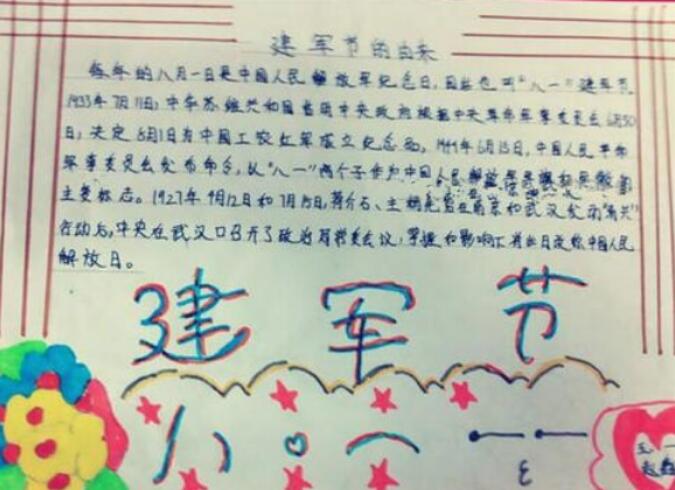 建军节的由来
每年的八月一日是中国人民解放军纪念日，因此也叫"八一"建军节
1933年7月11日，中华苏维共和国临时中央政府根据中央革命军事委员会6月30
日，决定8月1日为中国工农红军成立纪念。1949年6月15日，中国人民革命
军事委员会发布命令，从"八一"两个字作为中国人民
主要标志。1927年4月12日和7月15日，蒋介石、在南京和武汉发动
行动后，中央在武汉口召开了政治局常委会议，和影响下将此日改称中国人民
解放日。
建军节
八一